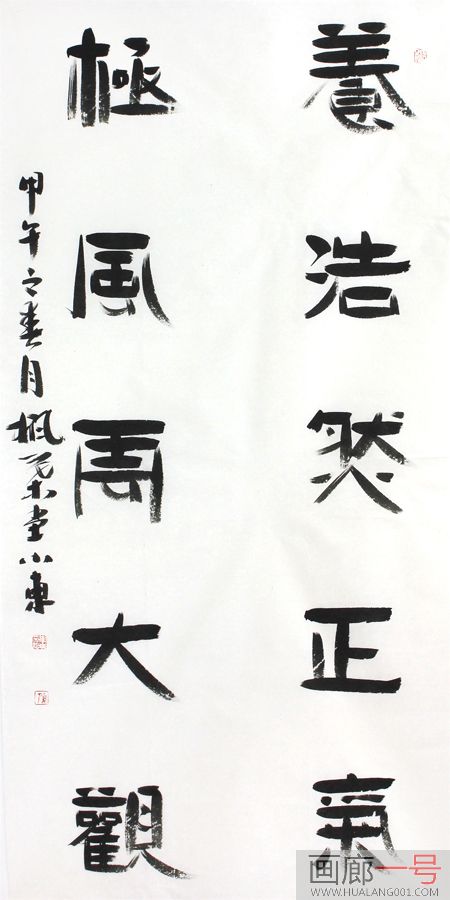 養浩然正氣
極風周大觀
甲午之春月楓葉堂小東
画廊一号
WWW.HUALANG001.COM